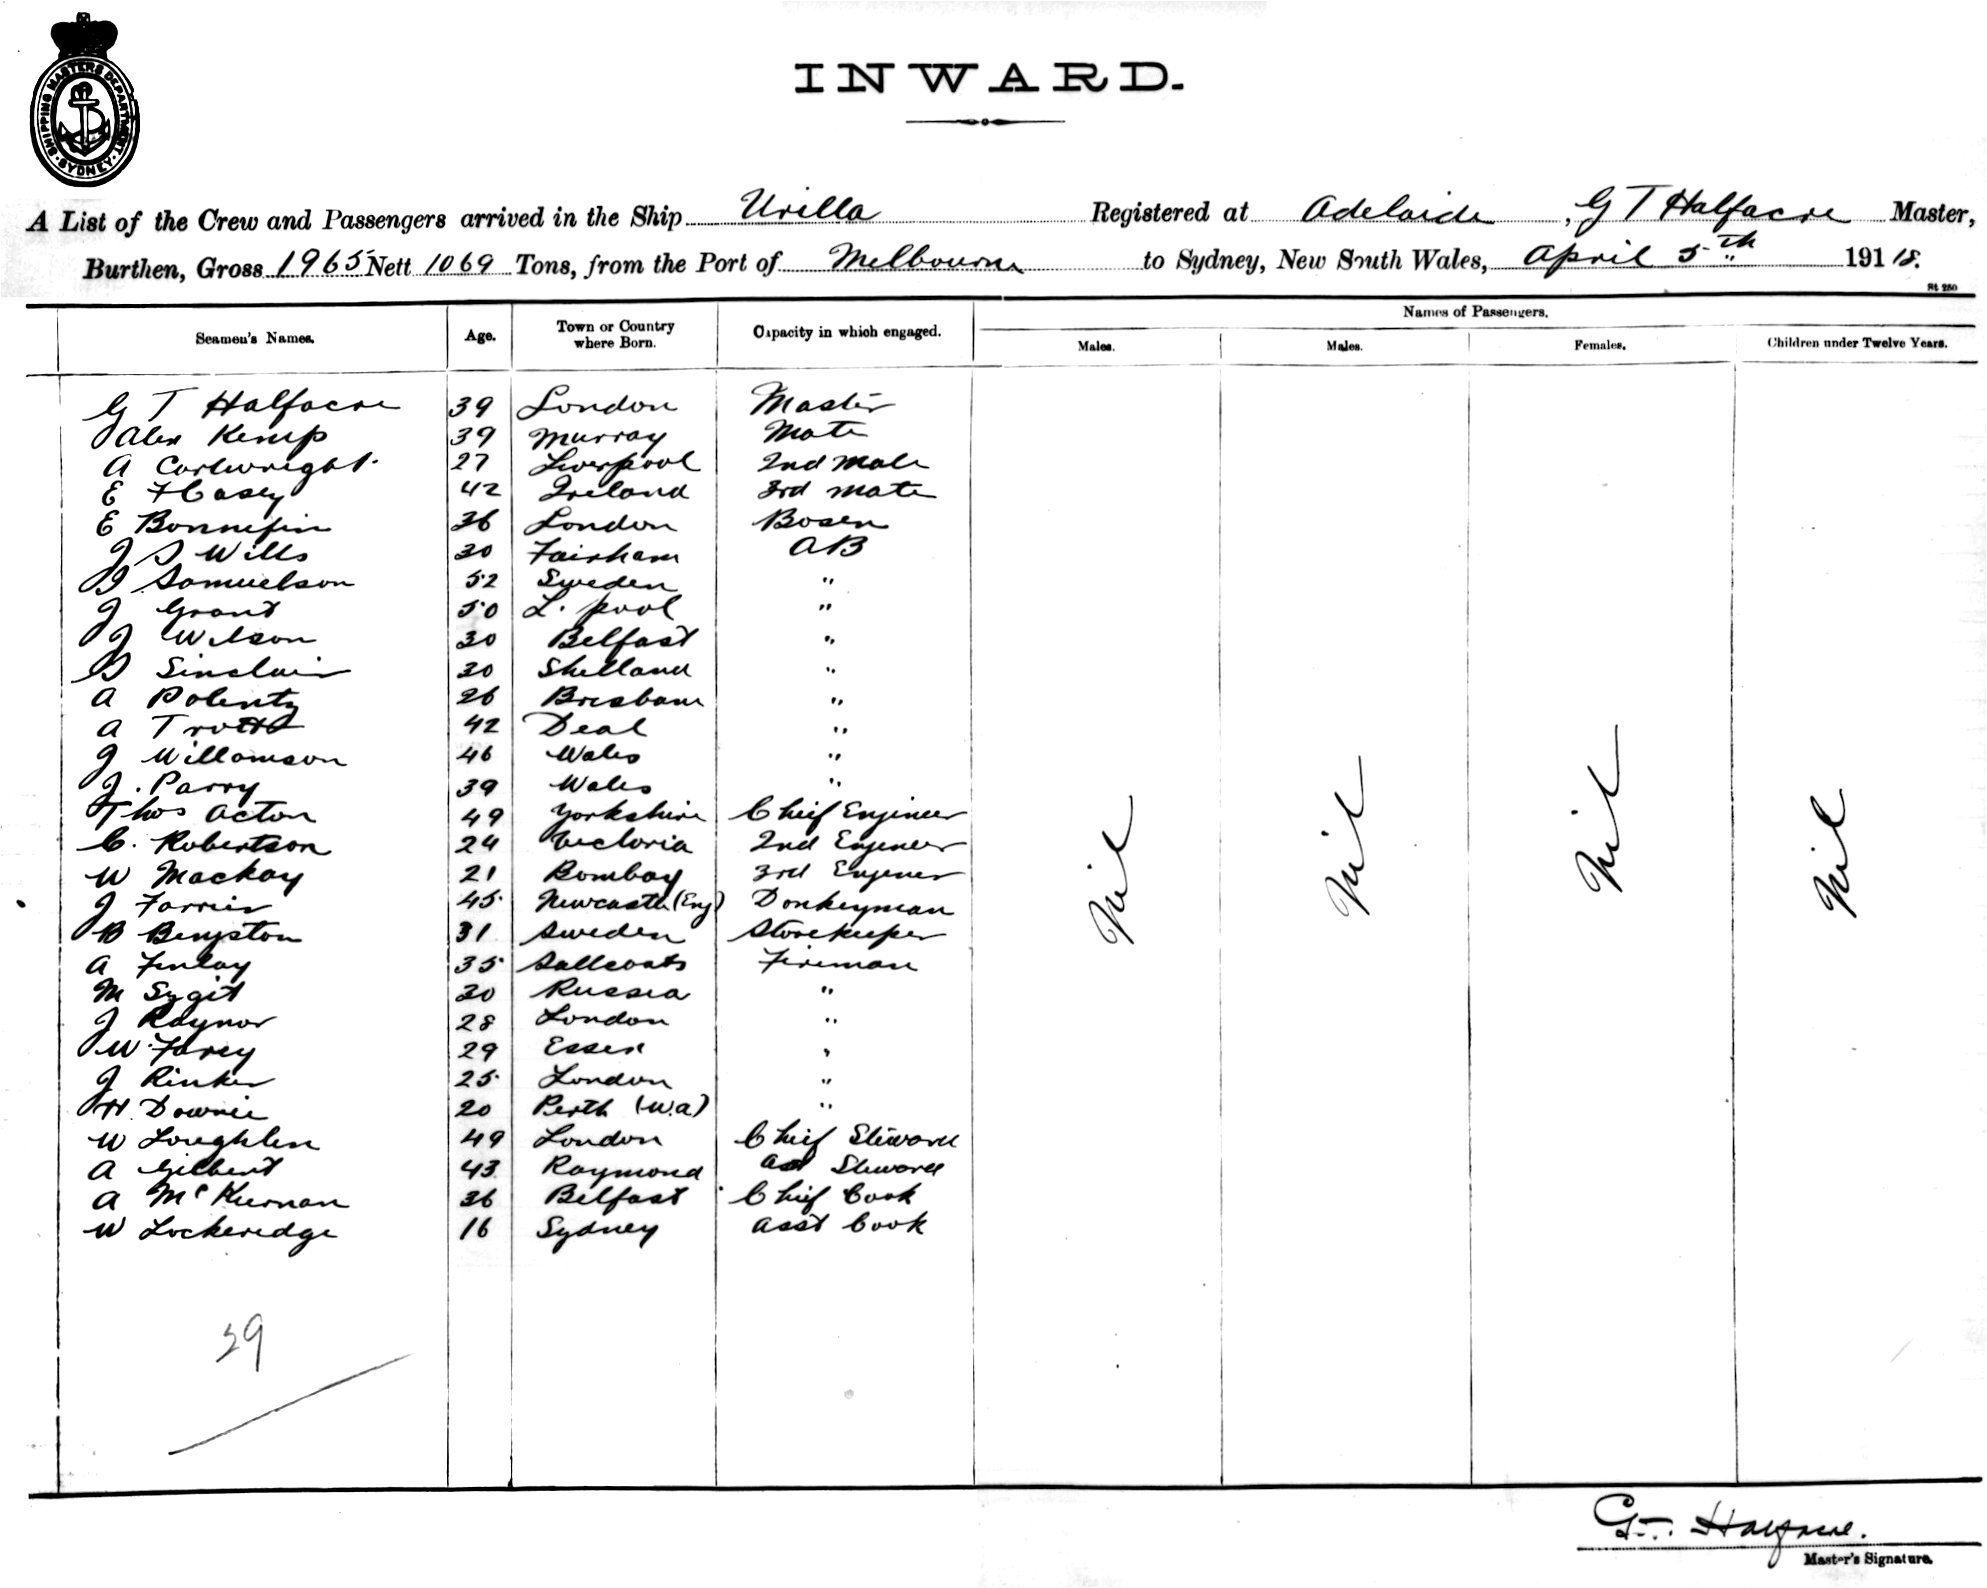 SHIPPING MASTERS DEPARTMENT · SYDNEY ·
INWARD.
A List of the Crew and Passengers arrived in the Ship Urilla Registered at Adelaide, G T Halfacre Master,
Burthen, Gross 1965 Nett 1069 Tons, from the Port of Melbourne to Sydney, New South Wales, April 5th 1918.
St 250
Names of Passengers.
Seamen's Names. Age. Town or Country where Born. Capacity in which engaged. Males. Males. Females. Children under Twelve Years.
G T Halfacre 39 London Master
Alex Kemp 39 Murray Mate
A Cartwright 27 Liverpool 2nd Mate
E Casey 42 Ireland 3rd Mate
E Bonnefin 36 London Bosen
J S Wills 30 Fairham AB
Samuelson 52 Sweden "
J Grant 50 L. pool "
J Wilson 30 Belfast "
Sinclair 30 Shetland "
A Polentz 26 Brisbane "
A Trott 42 Deal "
J Willamson 46 Wales "
J. Parry 39 Wales "
Thos Acton 49 Yorkshire Chief Engineer
C. Robertson 24 Victoria 2nd Engineer
W Mackay 21 Bombay 3rd Engineer
J Farrier 45 Newcastle (Eng) Donkeyman
B Bengston 31 Sweden Storekeeper
A Finlay 35 Saltcoats Fireman
M Sygit 30 Russia "
J Raynor 28 London "
W. Farey 29 Essex "
J Rinker 25 London "
H. Downie 20 Perth (W.A) "
W Loughlin 49 London Chief Steward
A Gilbert 43 Raymond Ast Steward
A McKiernan 36 Belfast Chief Cook
W Lockeredge 16 Sydney Asst Cook
Nil Nil Nil Nil
29
G.T. Halfacre.
Master's Signature.